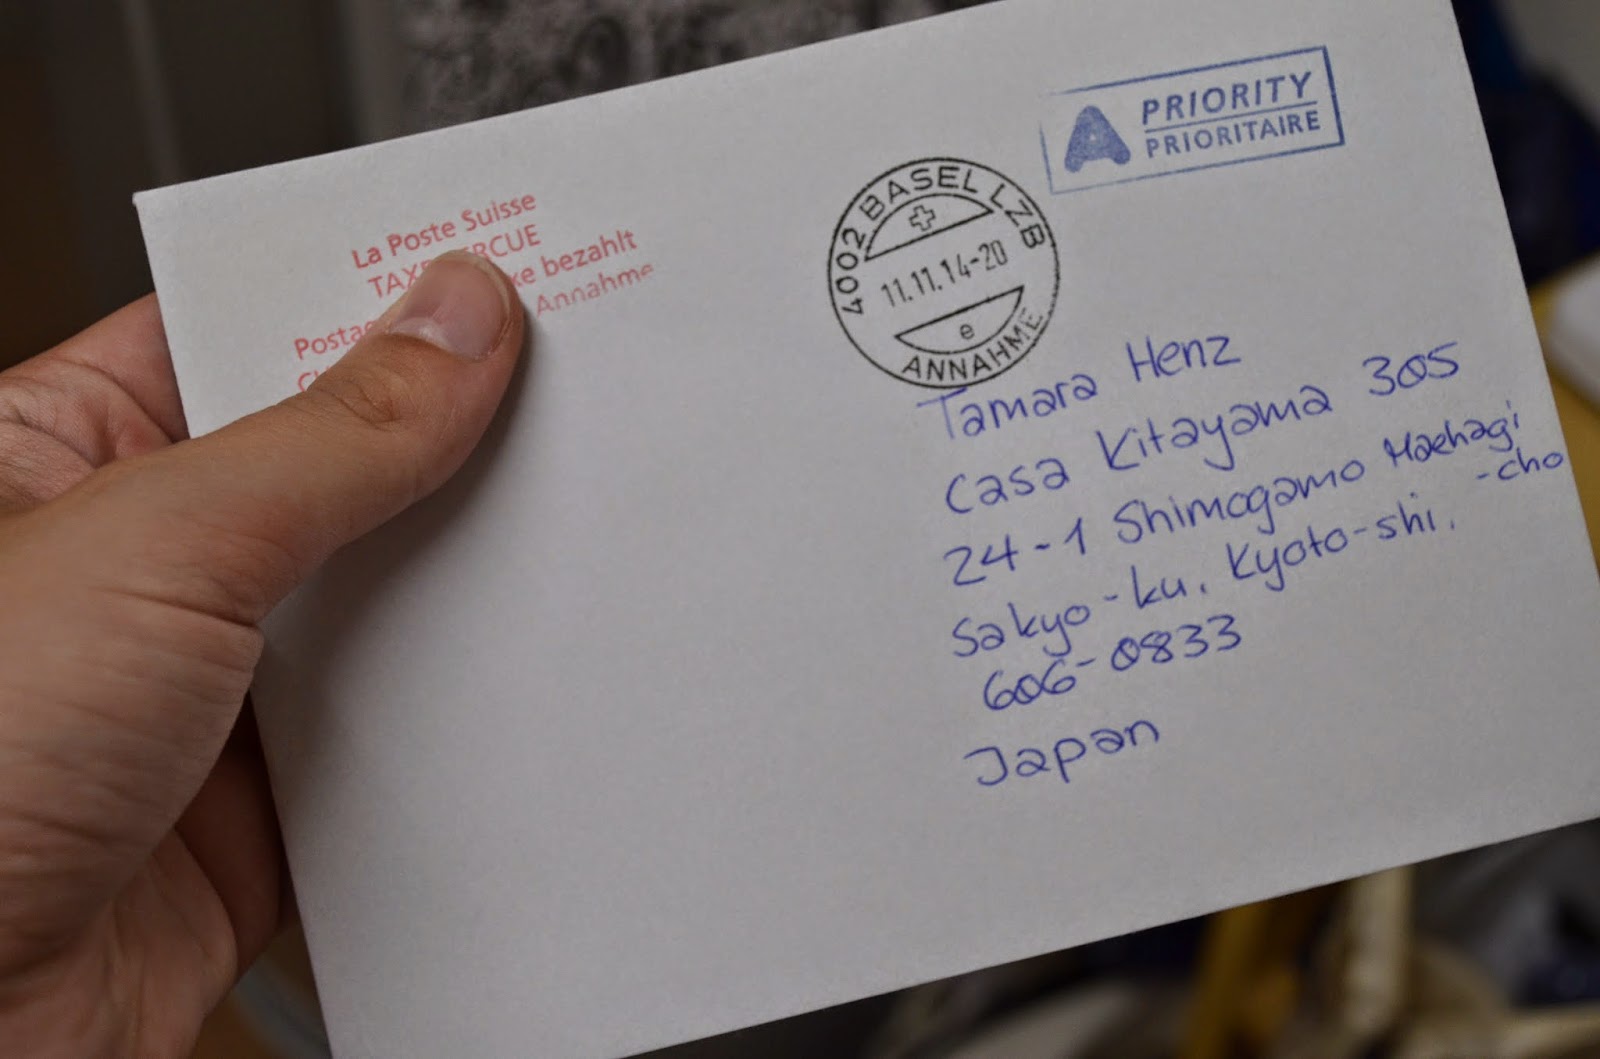 La Poste Suisse
bezahlt
Annahme
A PRIORITY
PRIORITAIRE
4002 BASEL LZB
11.11.14-20
e
ANNAHME
Tamara Henz
Casa Kitayama 305
24-1 Shimogamo Maehagi
-cho
Sakyo-ku, Kyoto-shi.
606-0833
Japan